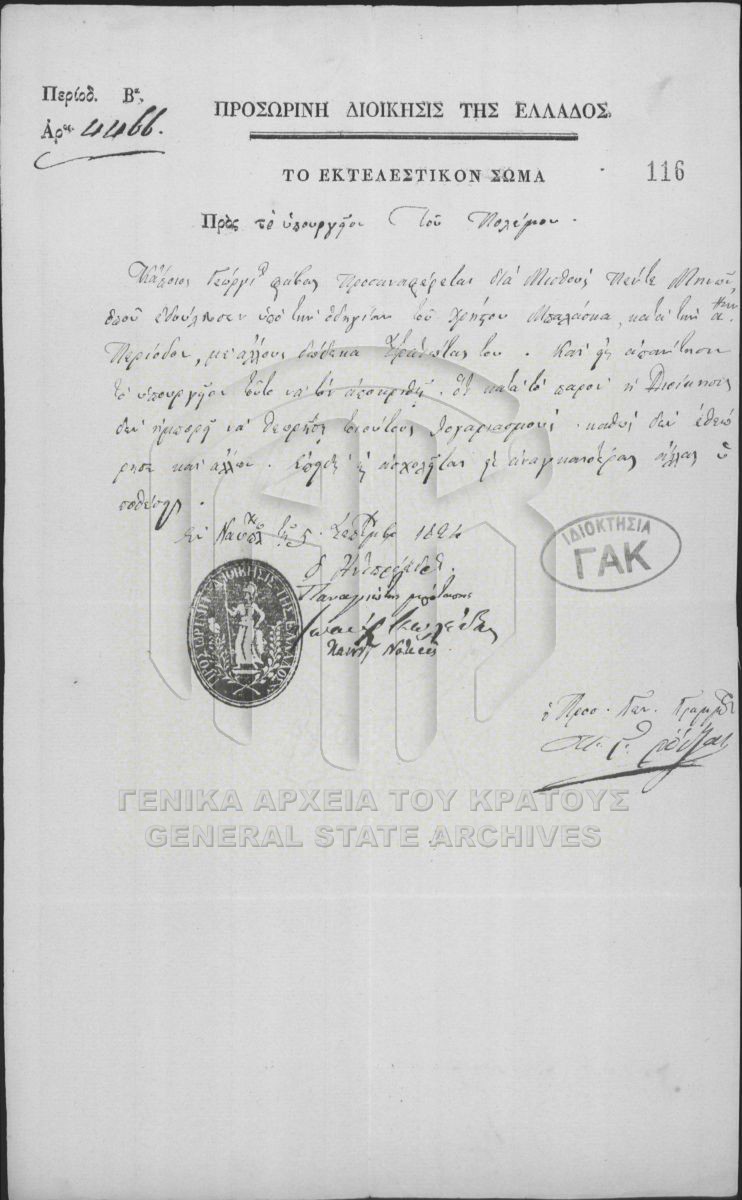 Περίοδ. Βα.
Ἀρ. 4466.
ΠΡΟΣΩΡΙΝΗ ΔΙΟΙΚΗΣΙΣ ΤΗΣ ΕΛΛΑΔΟΣ.
ΤΟ ΕΚΤΕΛΕΣΤΙΚΟΝ ΣΩΜΑ
116
Πρὸς τὸ ὑπουργῆον τοῦ Πολέμου.
Κάποιος Γεώργι προσαναφέρεται διὰ μισθοὺς πέντε μηνῶν,
ὁποῦ ἐδούλευσεν ὑπὸ τὴν ὁδηγίαν τοῦ Χρήστου Μπαλάσκα, κατὰ τὴν α
Περίοδον, μὲ ἄλλους δώδεκα στρατιώτας του. Καὶ εἰς ἀπάντησιν
τὸ ὑπουργῆον τοῦτο νὰ τὸν ἀποκριθῇ. ὅτι κατὰ τὸ παρὸν ἡ Διοίκησις
δὲν ἠμπορῇ νὰ θεωρήσῃ τοιούτους λογαριασμούς. καθὼς δὲν ἐθεώ
ρησε καὶ ἄλλων. ἀσχολῆται εἰς ἀναγκαιοτέρας ἄλλας ὑ
ποθέσεις.
Ἐν Ναυπλ τῇ 5 Σεπτεμβρ 1824
ὁ Ἀντιπρόεδρ.
Παναγιώτης μπότασης
ΠΡΟΣΩΡΙΝΗ ΔΙΟΙΚΗΣΙΣ ΤΗΣ ΕΛΛΑΔΟΣ
ΙΔΙΟΚΤΗΣΙΑ
ΓΑΚ
ὁ Προσ. Γεν. Γραμμ
ΓΕΝΙΚΑ ΑΡΧΕΙΑ ΤΟΥ ΚΡΑΤΟΥΣ
GENERAL STATE ARCHIVES